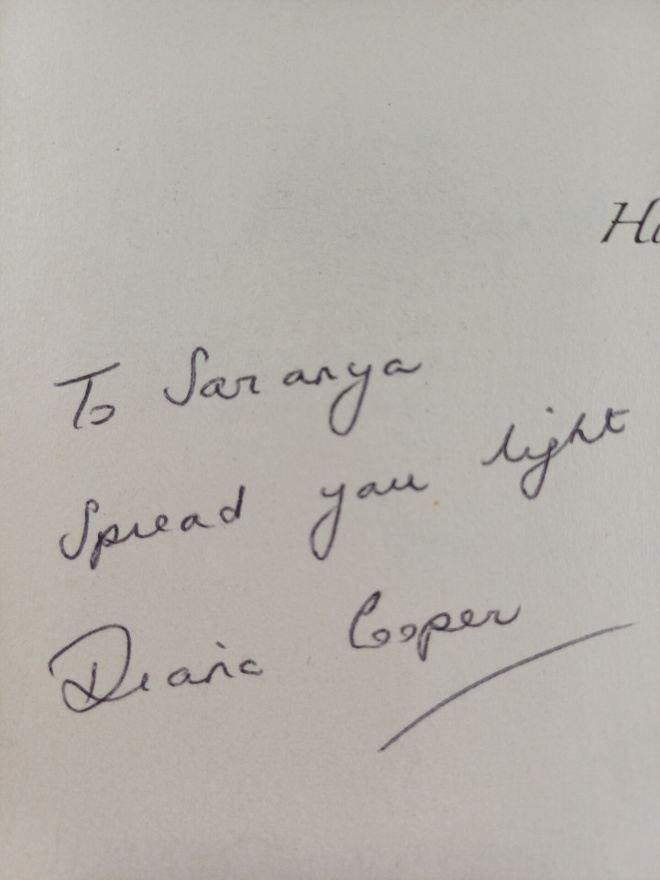 Ho
To Saranya
Spread you light
Diana Cooper